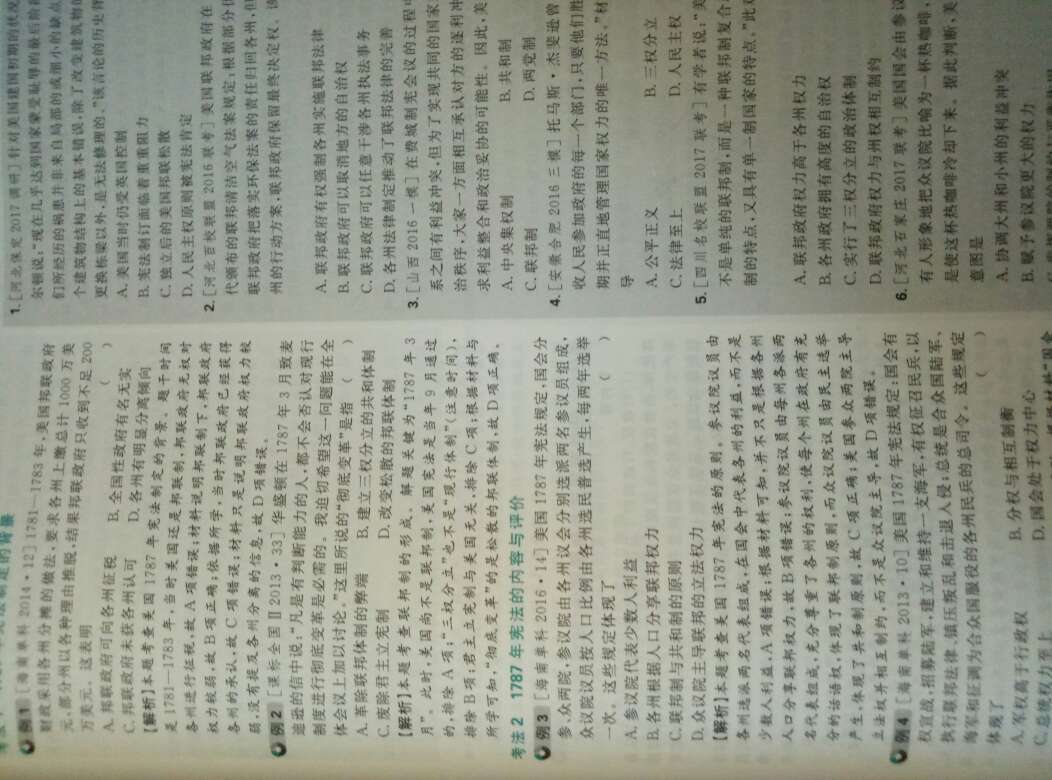 例1 [海南单科2014·12]1781—1783年,美国邦联政府
财政采用各州分摊的做法,要求各州上缴总计1000万美
元,部分州以各种理由推脱,结果邦联政府只收到不足200
万美元。这表明 ( )
A.邦联政府可向各州征税 B.全国性政府有名无实
C.邦联政府未获各州认可 D.各州有明显分离倾向
【解析】本题考查美国1787年宪法制定的背景。题干时间
是1781—1783年,当时美国还是邦联制,邦联政府无权对
各州进行征税,故A项错误;材料说明邦联制下,邦联政府
权力较弱,故B项正确;依据所学,当时邦联政府已经获得
各州的承认,故C项错误;材料只是说明邦联政府权力较
弱,没有提及各州分离的信息,故D项错误。
例2 [课标全国Ⅱ2013·33]华盛顿在1787年3月致麦
迪逊的信中说:“凡是有判断能力的人,都不会否认对现行
制度进行彻底变革是必需的。我迫切希望这一问题能在全
体会议上加以讨论。”这里所说的“彻底变革”是指 ( )
A.革除联邦体制的弊端 B.建立三权分立的共和体制
C.废除君主立宪制 D.改变松散的邦联体制
【解析】本题考查联邦制的形成。解题关键为“1787年3
月”。此时,美国尚不是联邦制,美国宪法是当年9月通过
的,排除A项;“三权分立”也不是“现行体制”(注意时间),
排除B项;君主立宪制与美国无关,排除C项;根据材料与
所学可知,“彻底变革”的是松散的邦联体制,故D项正确。
考法2 1787年宪法的内容与评价
例3 [海南单科2016·14]美国1787年宪法规定,国会分
参、众两院,参议院由各州议会分别选派两名参议员组成,
众议院议员按人口比例由各州选民普选产生,每两年选举
一次。这些规定体现了 ( )
A.参议院代表少数人利益
B.各州根据人口分享联邦权力
C.联邦制与共和制的原则
D.众议院主导联邦的立法权力
【解析】本题考查美国1787年宪法的原则。参议院议员由
各州选派两名代表组成,在国会中代表各州的利益,而不是
少数人利益,A项错误;根据材料可知,并不只是根据各州
人口分享联邦权力,故B项错误;参议院议员由每州各派两
名代表组成,充分尊重了各州的权利,使每个州在政府有充
分的话语权,体现了联邦制原则,而众议院议员由民主选举
产生,体现了共和制原则,故C项正确;美国参众两院主导
立法权并相互制约,而不是众议院主导,故D项错误。
例4 [海南单科2013·10]美国1787年宪法规定:国会有
权宣战,招募陆军,建立和维持一支海军,有权征召民兵,以
执行联邦法律、镇压叛乱和击退入侵;总统是合众国陆军、
海军和征调为合众国服役的各州民兵的总司令。这些规定
体现了 ( )
A.军权高于行政权 B.分权与相互制衡
C.总统权力 D.国会处于权力中心
1.[河北保定2017调研]针对美国建国初期的状况
尔顿说:“现在几乎达到国家蒙受耻辱的最后阶段
们所经历的祸患并非来自局部的或细小的缺点
个建筑物结构上的基本错误,除了改变建筑物的
更换栋梁以外,是无法修理的。”该言论的历史背
A.美国当时仍受英国控制
B.宪法制订面临着重重阻力
C.独立后的美国邦联松散
D.人民主权原则被宪法肯定
2.[河北百校联盟2016联考]美国联邦政府在
代颁布的联邦清洁空气法案规定:根据部分
联邦政府把落实环保法案的责任归回各州,但
州的行动方案,联邦政府保留最终决定权。该
A.联邦政府有权强制各州实施联邦法律
B.联邦政府可以取消地方的自治权
C.联邦政府可以任意干涉各州执法事务
D.各州法律制定推动了联邦法律的完善
3.[山西2016一模]在费城制宪会议的过程中
系之间有利益冲突,但为了实现共同的国家
治秩序,大家一方面相互承认对方的逐利冲
求利益整合和政治妥协的可能性。因此,美
A.中央集权制 B.共和制
C.联邦制 D.两党制
4.[安徽合肥2016三模]托马斯·杰斐逊曾
收人民参加政府的每一个部门,只要他们胜
期并正直地管理国家权力的唯一方法。”材
导
A.公平正义 B.三权分立
C.法律至上 D.人民主权
5.[四川名校联盟2017联考]有学者说:“美
不是单纯的联邦制,而是一种联邦制复合
制的特点,又具有单一制国家的特点。”此
A.联邦政府权力高于各州权力
B.各州政府拥有高度的自治权
C.实行了三权分立的政治体制
D.联邦政府权力与州权相互制约
6.[河北石家庄2017联考]美国国会由参议
有人形象地把众议院比喻为一杯热咖啡,
是使这杯热咖啡冷却下来。据此判断,美
意图是
A.协调大州和小州的利益冲突
B.赋予参议院更大的权力